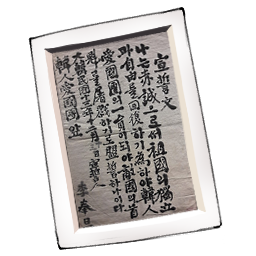 宣誓文
나는赤誠으로써祖國의獨立
과自由를回復하기爲하야韓人
愛國團의一員이되야敵國의首
魁를屠戮하기로盟誓하나이다
大韓民國十三年十二月十三日宣誓人
李奉昌
韓人愛國團앞